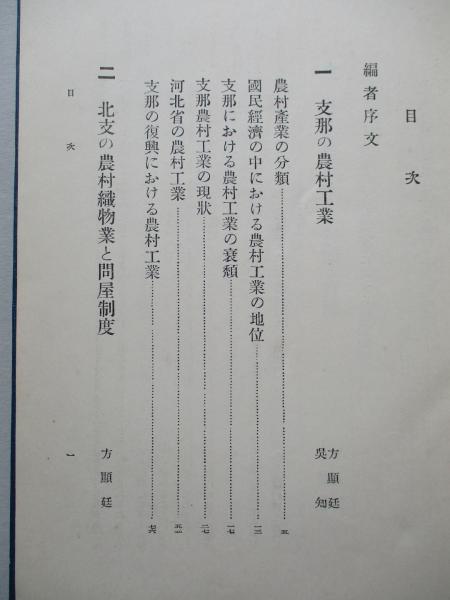 目次
編者序文
一 支那の農村工業
方顯廷
吳知
農村產業の分類……五
國民經濟の中における農村工業の地位……一三
支那における農村工業の衰頽……一七
支那農村工業の現狀……二七
河北省の農村工業……五一
支那の復興における農村工業……七六
二 北支の農村織物業と問屋制度
方顯廷
目次
一